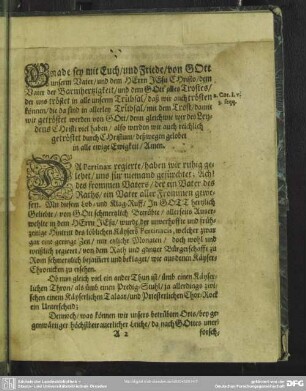 Gnade sey mit Euch/und Friede/von GOtt
unserm Vater/und dem HErrn JEsu Christo/dem
Vater der Barmhertzigkeit/und dem Gott alles Trostes/
der uns tröstet in alle unserm Trübsal/daß wir auch trösten
können/die da sind in allerley Trübsal/mit dem Trost/damit
wir getröstet werden von Gott/denn gleichwie wir des Ley-
dens Christi viel haben/also werden wir auch reichlich
getröstet durch Christum/deßwegen gelobet
in alle ewige Ewigkeit/Amen.
2. Cor. I. v.
3. seqq.
DA Pertinax regierte/haben wir ruhig ge-
lebet/uns für niemand gefürchtet. Ach!
des frommen Vaters/der ein Vater des
Raths/ein Vater aller Frommen gewe-
sen. Mit diesem Lob/und Klag-Ruff/In GOTT hertzlich
Geliebte/von GOtt schmertzlich Betrübte/allerseits Auser-
wehlte in dem HErrn JEsu/wurde der unverhoffte und früh-
zeitige Hintrit des löblichen Käysers Pertinacis, welcher zwar
gar eine geringe Zeit/nur etliche Monaten/doch wohl und
weißlich regieret/von dem Rath und gantzer Bürgerschafft zu
Rom schmertzlich bejammert und beklaget/wie aus denen Käyser-
Chronicken zu ersehen.
Ob nun gleich viel ein ander Thun ist/umb einen Käyser-
lichen Thron/als umb einen Predig-Stuhl/ja allerdings zwi-
schen einem Käyserlichen Talaar/und Priesterlichen Chor-Rock
ein Unterscheid:
Dennoch/was können wir unsers betrübten Orts/bey ge-
genwärtiger höchstbetrauerlicher Leiche/da nach GOttes uner-
A 2 forsch,